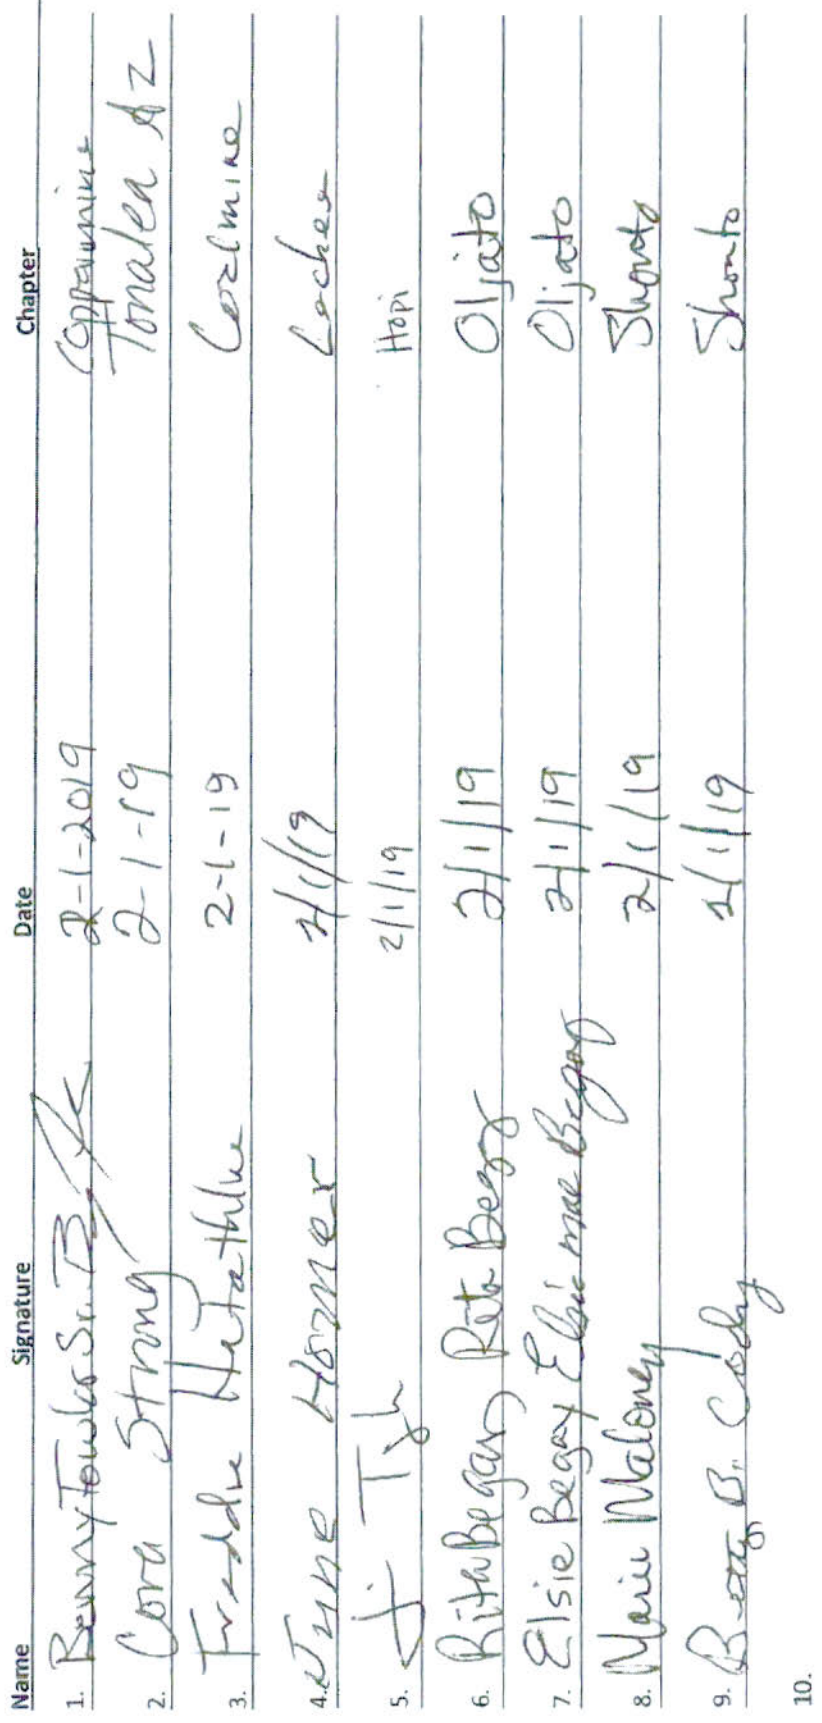 Name Signature Date Chapter
1. Benny Fowler Sr. 2-1-2019 Coppermine
2. Cora Strong 2-1-19 Tonalea AZ
3. Freddie Hatathlie 2-1-19 Coalmine
4. June Horner 2/1/19 Lechee
5. 2/1/19 Hopi
6. Rita Begay Rita Begay 2/1/19 Oljato
7. Elsie Begay Elsie mae Begay 2/1/19 Oljato
8. Marie Maloney 2/1/19 Shonto
9. Betty B. Cody 2/1/19 Shonto
10.